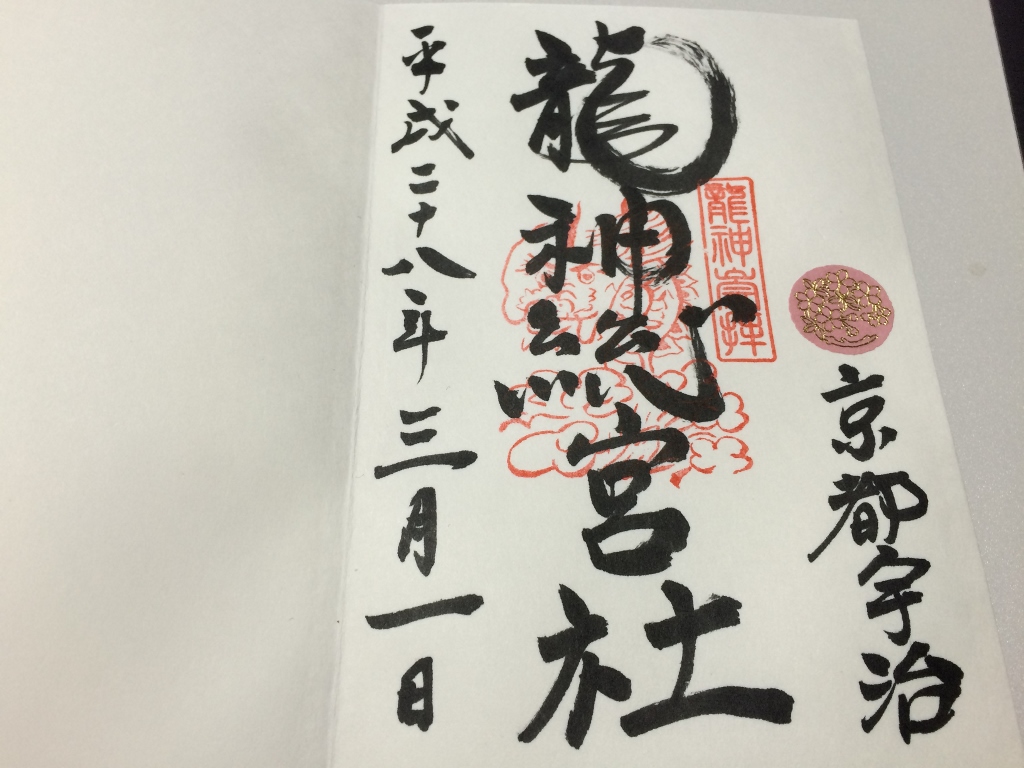 京都宇治
龍神総宮社
平成二十八年三月一日